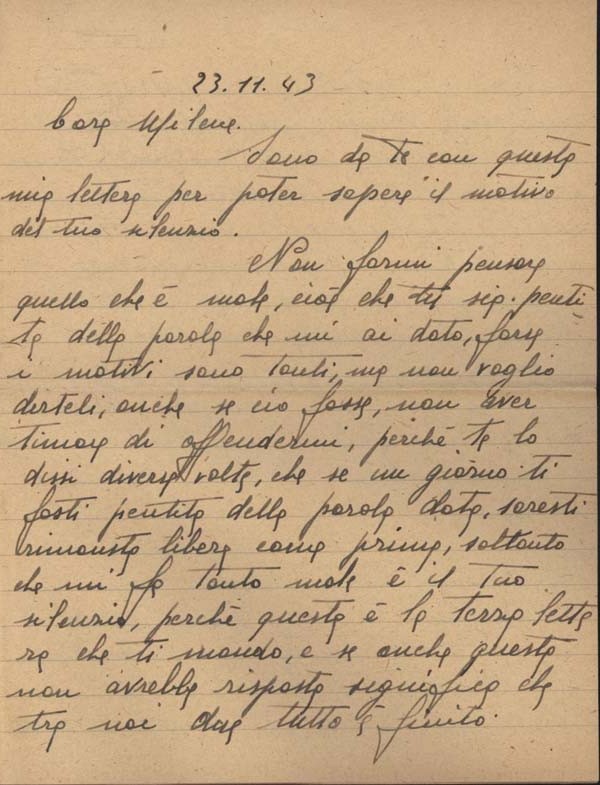 23.11.43
Cara Milena.
Sono da te con questa
mia lettera per poter sapere il motivo
del tuo silenzio.
Non farmi pensare
quello che è male, cioè che tu sia penti-
ta della parola che mi ai dato, forse
i motivi sono tanti, ma non voglio
dirteli, anche se ciò fosse, non aver
timore di offendermi, perchè te lo
dissi diverse volte, che se un giorno ti
fosti pentita della parola data, saresti
rimasta libera come prima, soltanto
che mi fa tanto male è il tuo
silenzio, perchè questa è la terza lette
ra che ti mando, e se anche questa
non avrebbe risposta significa che
tra noi due tutto è finito.